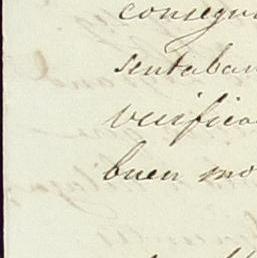 consegu
sentaban
verifica
buen mo